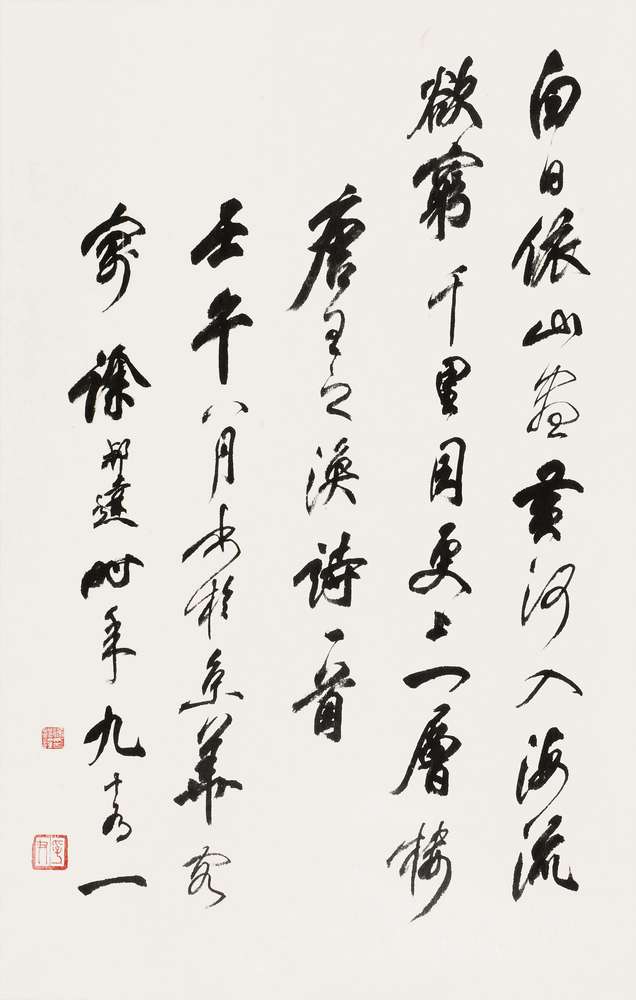 白日依山盡黄河入海流
欲窮千里目更上一層樓
唐王之渙詩一首
壬午八月書於京華客
寓徐邦達時年九十有一